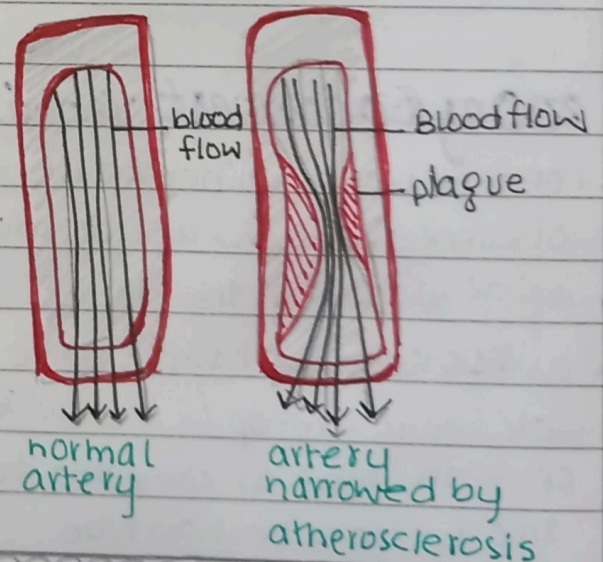 blood
flow
Blood flow
plaque
normal
artery
artery
narrowed by
atherosclerosis